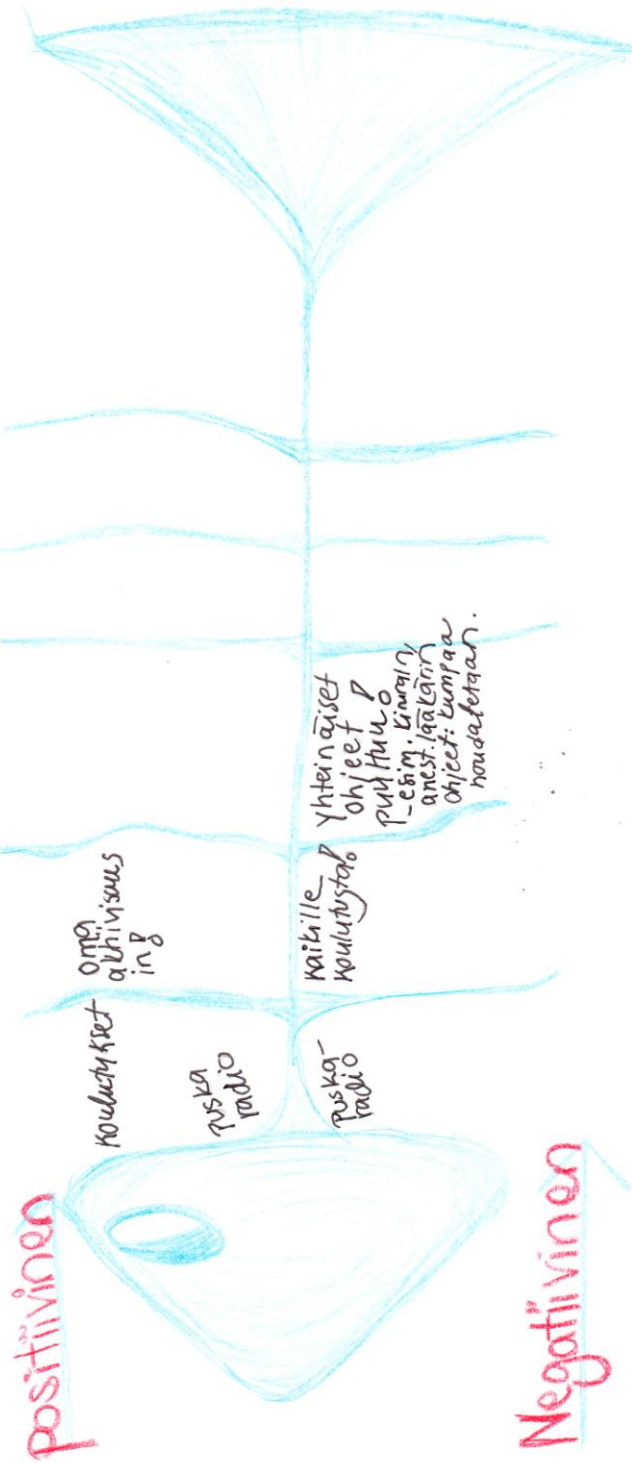 Positiivinen
koulutukset
puska
radio
oma
aktiivisuus
in!
Negatiivinen
puska-
radio
Kaikille
koulutusta!
Yhteinäiset
ohjeet
puuttuu!
- esim. kirurgin,
anest.lääkärin
ohjeet: kumpaa
noudatetaan.